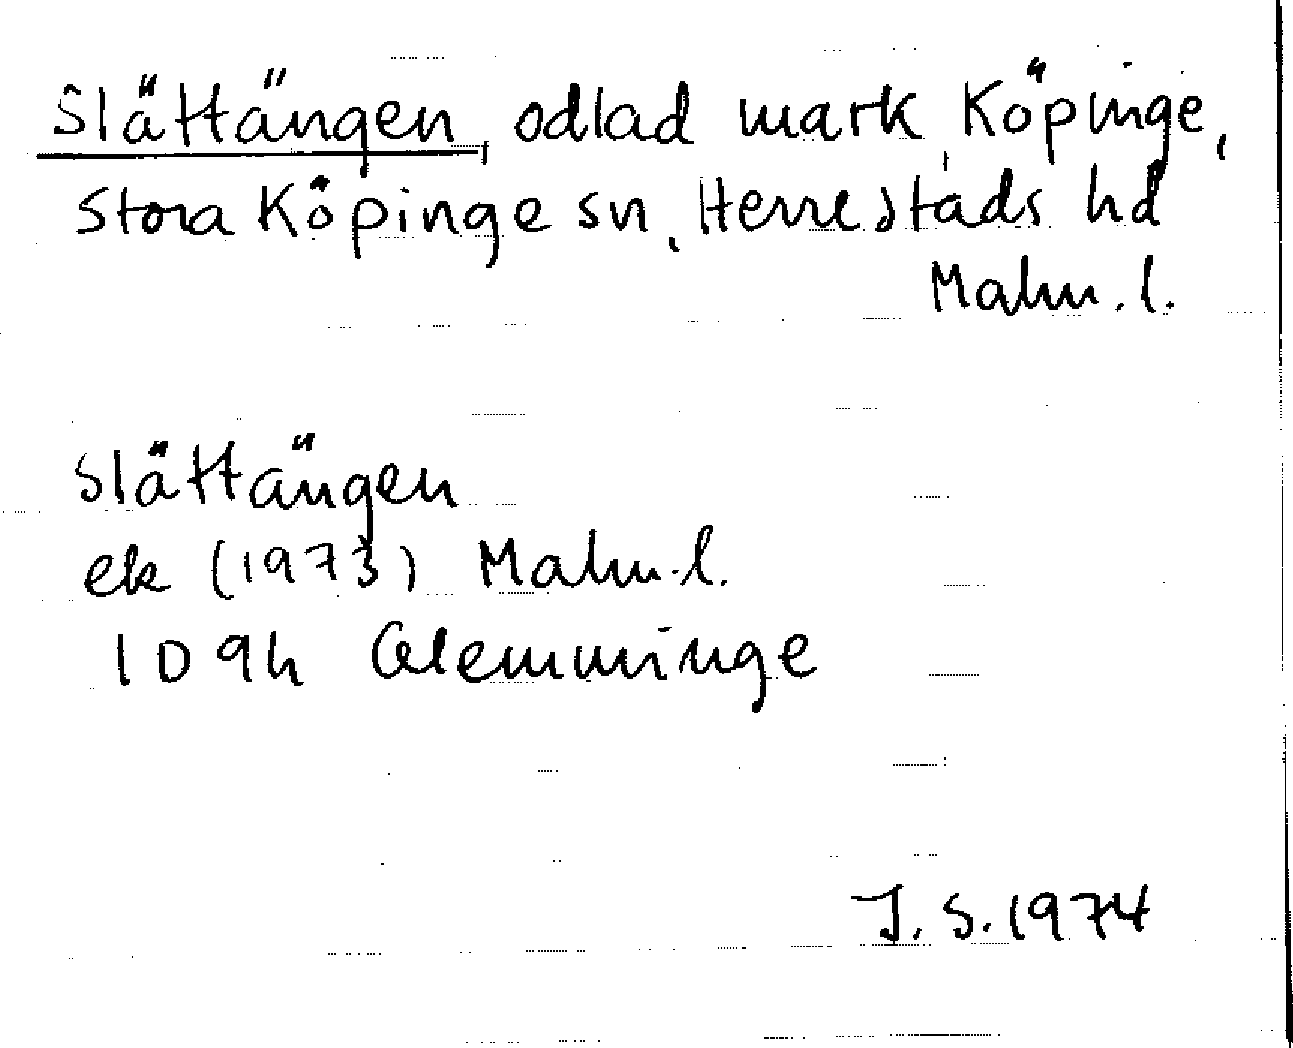 Slättängen, odlad mark, Köpinge,
Stora Köpinge sn, Herrestads hd
Malm. l.
Slättängen
ek (1973) Malm. l.
1D 9h Glemminge
J. S. 1974